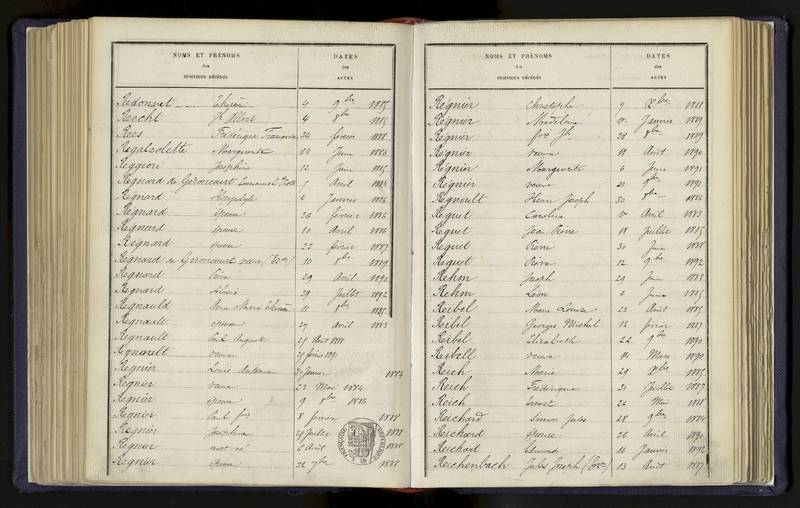 NOMS ET PRÉNOMS
des
INDIVIDUS DÉCÉDÉS
DATES
des
ACTES
Redonnet Thérèse 4 9bre 1885
Recht Jh Albert 4 8bre 1885
Rees Frédérique Françoise 22 février 1888
Regalcolette Marguerite 22 Juin 1886
Reggiori Joséphine 12 Juin 1885
Regnard de Gironcourt 5 Avril 1884
Regnard Hippolyte Janvier 1886
Regnard épouse 26 février 1886
Regnard épouse 10 Avril 1886
Regnard épouse 22 février 1887
Regnard de Gironcourt veuve 10 8bre 1889
Regnard 29 Avril 1890
Regnard 29 Juillet 1892
Regnauld Anne Marie Thérèse 11 8bre 1885
Regnault épouse 27 Avril 1883
Regnault Paul August 29 Août 1888
Regnault veuve 25 février 1891
Regnier Louise Antoinette 30 Janvier 1884
Regnier veuve 22 Mai 1884
Regnier épouse 9 8bre 1886
Regnier Paul 8 février 1888
Regnier Joséphine 28 Juillet 1888
Regnier mort né 6 Août 1888
Regnier épouse 22 7bre 1888
NOMS ET PRÉNOMS
des
INDIVIDUS DÉCÉDÉS
DATES
des
ACTES
Régnier Christophe 7 Xbre 1888
Régnier Madeleine Janvier 1889
Régnier Jh 28 8bre 1889
Régnier veuve 18 Août 1890
Régnier Marguerite 6 Juin 1891
Régnier veuve 21 9bre 1891
Regnoult Henri Joseph 30 8bre
Reguet Caroline Avril 1883
Reguet Jean Pierre 18 Juillet 1885
Reguet Pierre 30 Juin 1888
Reguet Pierre 12 9bre 1892
Rehm Joseph 29 Juin 1883
Rehm Léon 2 Juin 1885
Reibel Marie Louise 23 Août 1885
Reibel Georges Michel 12 février 1887
Reibel Elisabeth 22 9bre 1890
Reibell veuve 14 Mars 1890
Reich Marie 29 Xbre 1885
Reich Frédérique 31 Juillet 1887
Reich Ernest 22 Mai 1888
Reichard Simon Jules 28 9bre 1884
Reichard épouse 26 Avril 1890
Reichart Edmond 16 Janvier 1892
Reichenbach Jules Joseph 13 Août 1887